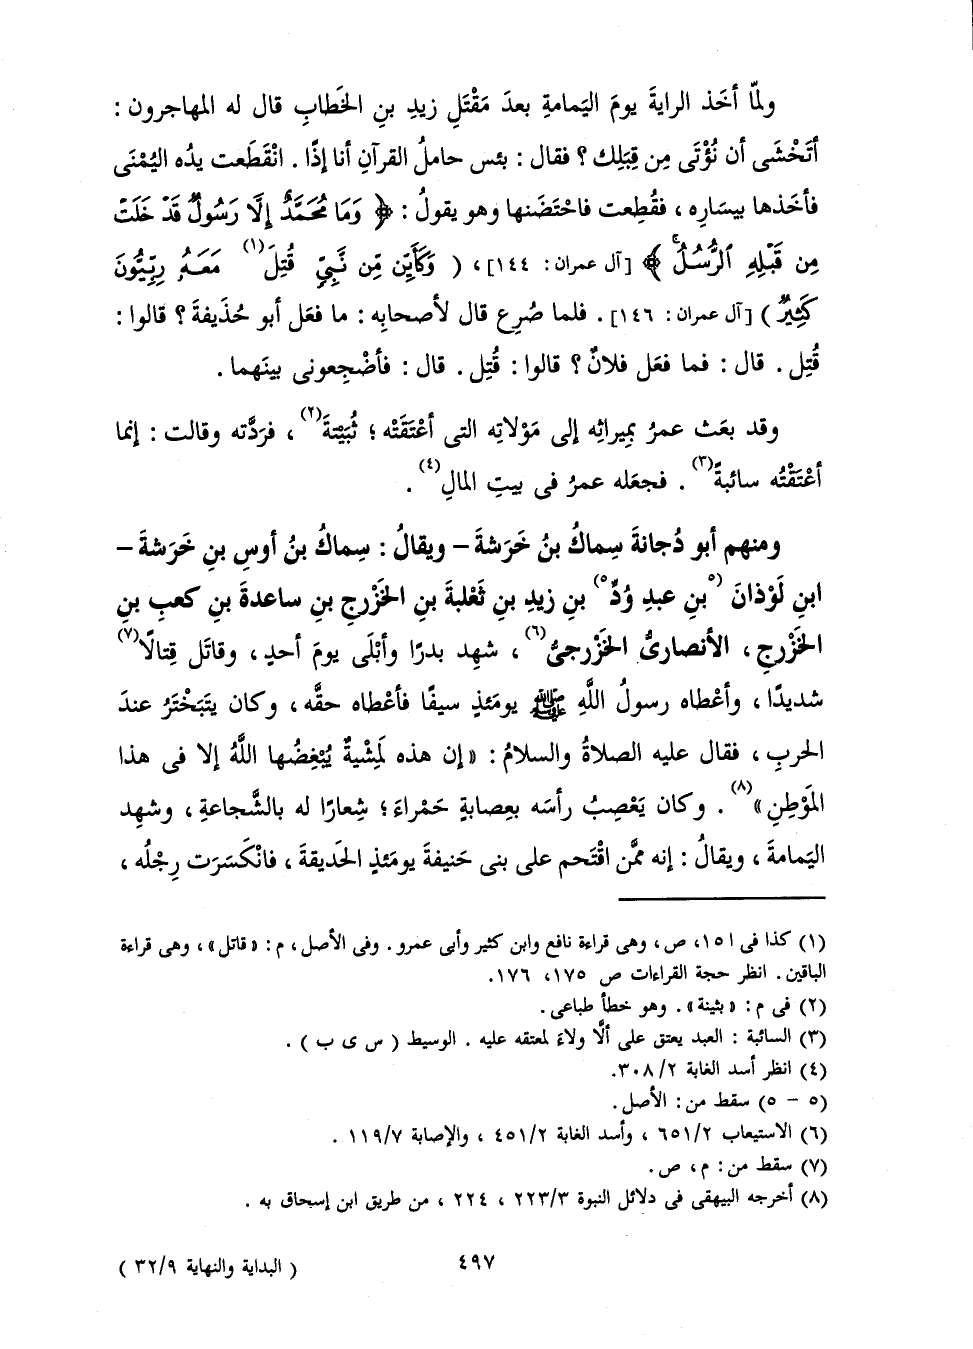 ولمّا أخَذ الرايةَ يومَ اليَمامةِ بعدَ مَقْتَلِ زيدِ بنِ الخَطابِ قال له المهاجرون :
أتَخْشَى أن نُؤْتَى مِن قِبَلِك ؟ فقال : بئس حاملُ القرآنِ أنا إذًا . انْقَطَعت يدُه اليُمْنَى
فأخَذها بيسَارِه ، فقُطِعت فاحْتَضَنها وهو يقولُ : ﴿ وَمَا مُحَمَّدٌ إِلَّا رَسُولٌ قَدْ خَلَتْ
مِن قَبْلِهِ ٱلرُّسُلُ ﴾ [آل عمران: ١٤٤] ، ( وَكَأَيِّن مِّن نَّبِيٍّ قُتِلَ(١) مَعَهُ رِبِّيُّونَ
كَثِيرٌ ) [آل عمران: ١٤٦] . فلما صُرِع قال لأصحابِه : ما فعَل أبو حُذَيفةَ ؟ قالوا :
قُتِل . قال : فما فعَل فلانٌ ؟ قالوا : قُتِل . قال : فأَضْجِعونى بينَهما .
وقد بعَث عمرُ بمِيراثِه إلى مَوْلاتِه التى أعْتَقَتْه ؛ ثُبَيْتةَ(٢) ، فرَدَّته وقالت : إنما
أعْتَقْتُه سائبةً(٣) . فجعَله عمرُ فى بيتِ المالِ(٤) .
ومنهم أبو دُجانةَ سِماكُ بنُ خَرَشةَ – ويقالُ : سِماكُ بنُ أوسِ بنِ خَرَشةَ –
ابنِ لَوْذانَ (٥بنِ عبدِ وُدِّ٥) بنِ زيدِ بنِ ثَعْلبةَ بنِ الخَزْرجِ بنِ ساعدةَ بنِ كعبِ بنِ
الخَزْرجِ ، الأنصارىُّ الخَزْرجىُّ(٦) ، شهِد بدرًا وأبْلَى يومَ أحدٍ ، وقاتَل قِتالًا(٧)
شديدًا ، وأعْطاه رسولُ اللَّهِ ﷺ يومَئذٍ سيفًا فأعْطاه حقَّه ، وكان يَتَبَخْتَرُ عندَ
الحربِ ، فقال عليه الصلاةُ والسلامُ : «إن هذه لَمِشْيةٌ يُبْغِضُها اللَّهُ إلا فى هذا
المَوْطِنِ»(٨) . وكان يَعْصِبُ رأسَه بعِصابةٍ حَمْراءَ ؛ شِعارًا له بالشَّجاعةِ ، وشهِد
اليَمامةَ ، ويقالُ : إنه ممَّن اقْتَحم على بنى حَنيفةَ يومَئذٍ الحَديقةَ ، فانْكَسَرَت رِجْلُه ،
(١) كذا فى ا ١٥، ص ، وهى قراءة نافع وابن كثير وأبى عمرو . وفى الأصل ، م : «قاتل» ، وهى قراءة
الباقين . انظر حجة القراءات ص ١٧٥، ١٧٦.
(٢) فى م : «بثينة» . وهو خطأ طباعى .
(٣) السائبة : العبد يعتق على ألَّا ولاءَ لمعتقه عليه . الوسيط ( س ى ب ) .
(٤) انظر أسد الغابة ٢/ ٣٠٨.
(٥ - ٥) سقط من : الأصل .
(٦) الاستيعاب ٢/ ٦٥١ ، وأسد الغابة ٢/ ٤٥١ ، والإصابة ٧/ ١١٩ .
(٧) سقط من : م ، ص .
(٨) أخرجه البيهقى فى دلائل النبوة ٣/ ٢٢٣ ، ٢٢٤ ، من طريق ابن إسحاق به .
٤٩٧
( البداية والنهاية ٩/ ٣٢ )